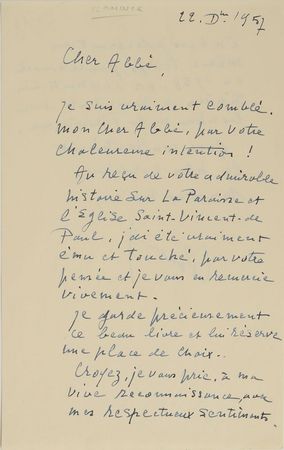 VLAMINCK
22. Dbre 1957
Cher Abbé,
je suis vraiment comblé.
mon Cher Abbé, par votre
chaleureuse intention !
Au reçu de votre admirable
histoire sur La Paroisse et
l'Eglise Saint-Vincent-de
Paul, j'ai été vraiment
ému et touché, par votre
pensée et je vous en remercie
vivement.
je garde précieusement
ce beau livre et lui réserve
une place de choix..
Croyez, je vous prie, à ma
vive reconnaissance, avec
mes respectueux sentiments.